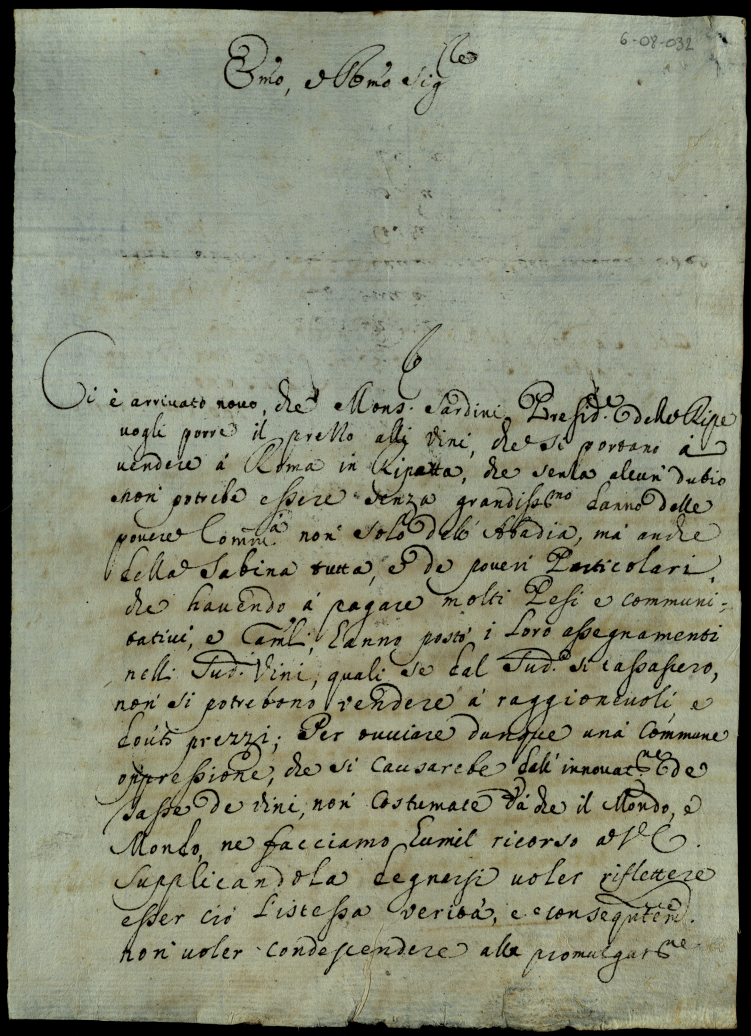 6-08-032
Emo, e Rmo Sig.re
Ci è arrivato novo, che Mons. Sardini Presid.te delle Ripe
vogli porre il prezzo alli vini, che si portano à
vendere à Roma in Ripetta, che senza alcun dubio
non potrebe essere senza grandiss.mo danno delle
povere Comm.tà non solo dell' Abadia, ma anche
della Sabina tutta, e de poveri Particolari,
che havendo à pagare molti Pesi e communi-
tativi, e Cam.li, hanno posto i loro assegnamenti
nelli Sud.i Vini, quali se dal Sud.o si tassassero,
non si potrebono vendere à raggionevoli, e
douti prezzi; Per ovviare dunque una commune
oppressione, che si causarebe dall' innovat.ne de
tasse de vini, non costumate da che il Mondo, è
Mondo, ne facciamo humil ricorso a V. E.
Supplicandola degnarsi voler riflettere
esser ciò l'istessa verità, e consequtem.
non voler condescendere alla promulgat.ne